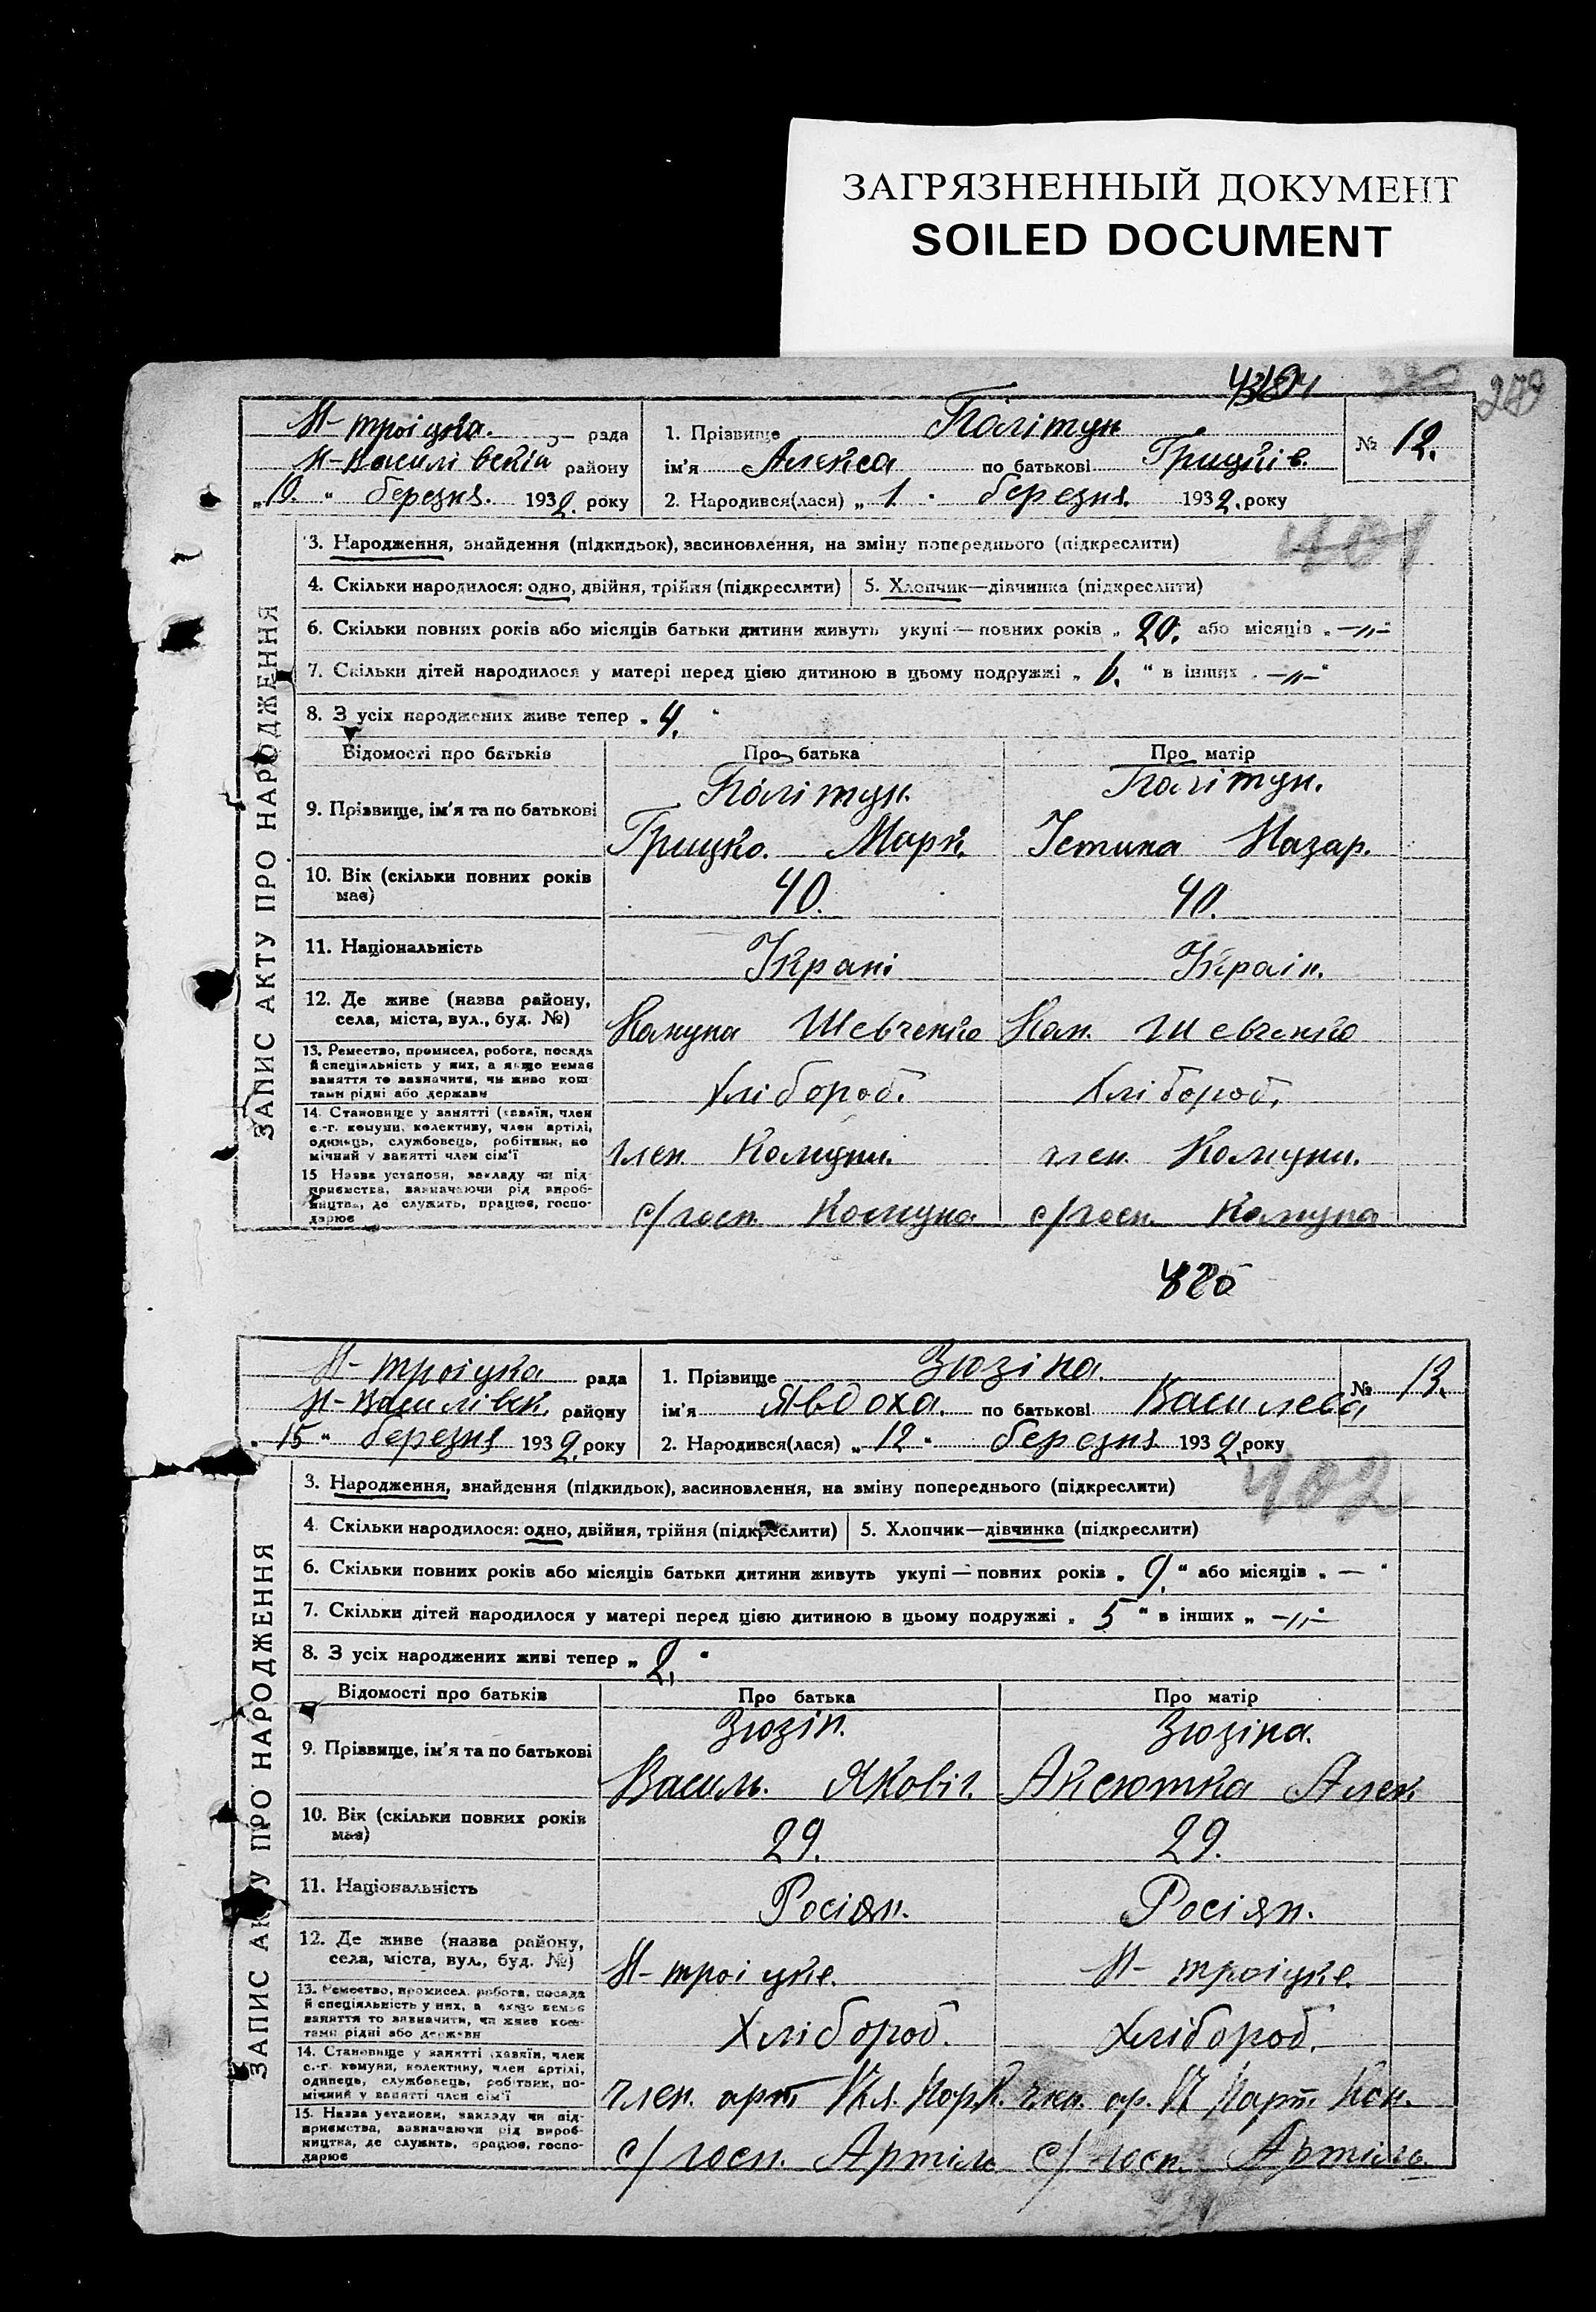 ЗАГРЯЗНЕННЫЙ ДОКУМЕНТ
SOILED DOCUMENT
Н-троіцка. рада
Н-Василівскій району
„10. “ березня. 1932. року
1. Прізвище Політун
ім'я Алекса по батькові Грицків.
2. Народився(лася) „ 1. “ березня. 1932. року
№ 12.
ЗАПИС АКТУ ПРО НАРОДЖЕННЯ
3. Народження, знайдення (підкидьок), засиновлення, на зміну попереднього (підкреслити)
401
4. Скільки народилося: одно, двійня, трійня (підкреслити) 5. Хлопчик—дівчинка (підкреслити)
6. Скільки повних років або місяців батьки дитини живуть укупі — повних років „ 20. або місяців „ —„—“
7. Скільки дітей народилося у матері перед цією дитиною в цьому подружжі „ 6. “ в інших „ —„—“
8. З усіх народжених живе тепер „ 4. “
Відомості про батьків Про батька Про матір
9. Прізвище, ім'я та по батькові
Політун. Політун.
Грицко. Марк. Устина Назар.
10. Вік (скільки повних років має)
40. 40.
11. Національність
Украні Украін.
12. Де живе (назва району,
села, міста, вул., буд. №)
Комуна Шевченко Ком. Шевченко
13. Ремество, промисел, робота, посада
й спеціяльність у них, а якщо немає
заняття то зазначити, чи живе кош-
тами рідні або держави
Хлібороб. Хлібороб.
14. Становище у занятті (хазяїн, член
с.-г. комуни, колективу, член артілі,
одинець, службовець, робітник, по
мічний у занятті член сім'ї
член. Комуни. член. Комуни.
15 Назва установи, закладу чи під-
приємства, зазначаючи рід вироб-
ництва, де служить, працює, госпо-
дарює
с/госп. Комуна с/госп. Комуна
Н-троіцка рада
Н-Василівск. району
„ 15 “ березня 1932. року
1. Прізвище Зюзіна.
ім'я Явдоха. по батькові Василева
2. Народився(лася) „ 12 “ березня. 1932. року
№ 13.
ЗАПИС АКТУ ПРО НАРОДЖЕННЯ
3. Народження, знайдення (підкидьок), засиновлення, на зміну попереднього (підкреслити)
402
4. Скільки народилося: одно, двійня, трійня (підкреслити) 5. Хлопчик—дівчинка (підкреслити)
6. Скільки повних років або місяців батьки дитини живуть укупі — повних років „ 9. “ або місяців „ — “
7. Скільки дітей народилося у матері перед цією дитиною в цьому подружжі „ 5 “ в інших „ —„—“
8. З усіх народжених живі тепер „ 2. “
Відомості про батьків Про батька Про матір
9. Прізвище, ім'я та по батькові
Зюзін. Зюзіна.
Василь. Якович. Аксютка Алек.
10. Вік (скільки повних років має)
29. 29.
11. Національність
Росіян. Росіян.
12. Де живе (назва району,
села, міста, вул., буд. №)
Н-троіцке. Н-троіцке.
13. Ремество, промисел, робота, посада
й спеціяльність у них, а якщо немає
заняття то зазначити, чи живе кош-
тами рідні або держави
Хлібороб. Хлібороб.
14. Становище у занятті (хазяїн, член
с.-г. комуни, колективу, член артілі,
одинець, службовець, робітник, по-
мічний у занятті член сім'ї
член. арт. член. ар.
15. Назва установи, закладу чи під-
приємства, зазначаючи рід вироб-
ництва, де служить, працює, госпо-
дарює
с/госп. Артіль с/госп. Артіль.